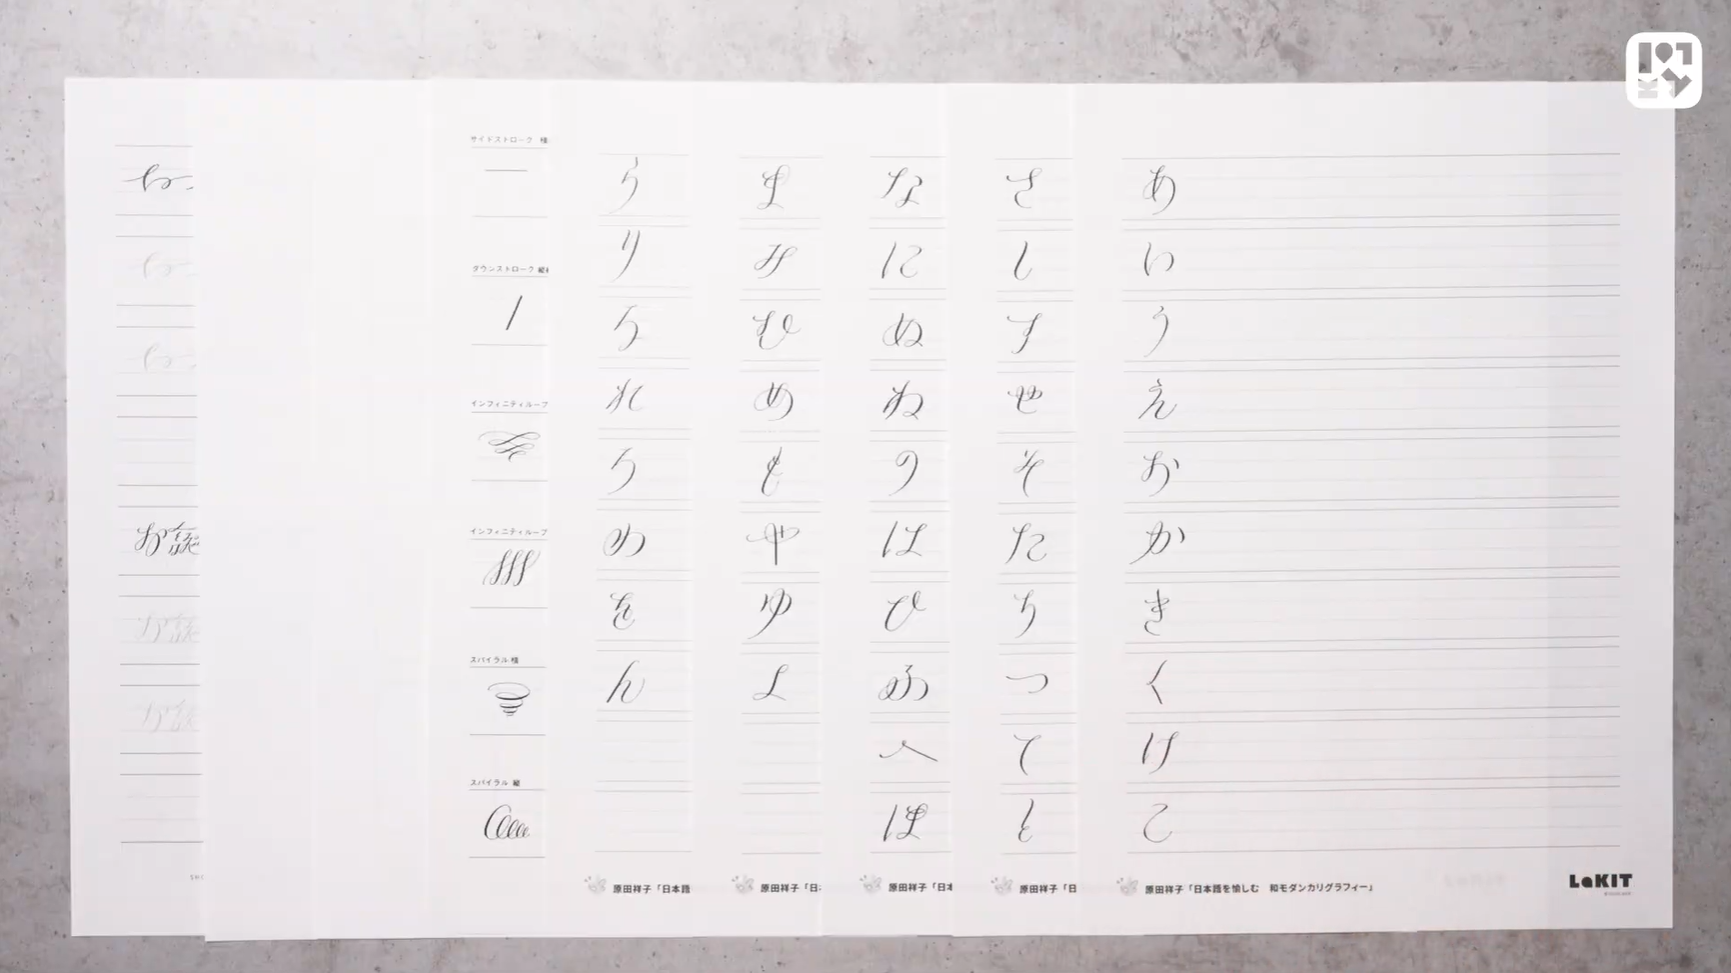 あ
い
う
え
お
か
き
く
け
こ
原田祥子「日本語を愉しむ 和モダンカリグラフィー」
LaKIT
さ
し
す
せ
そ
た
ち
つ
て
と
原田祥子「日
な
に
ぬ
ね
の
は
ひ
ふ
へ
ほ
原田祥子「日本
ま
み
む
め
も
や
ゆ
よ
原田祥子「日本
ら
り
る
れ
ろ
わ
を
ん
原田祥子「日本語
サイドストローク 横
ダウンストローク 縦
インフィニティループ
インフィニティループ
スパイラル 横
スパイラル 縦
お疲
お疲
お疲